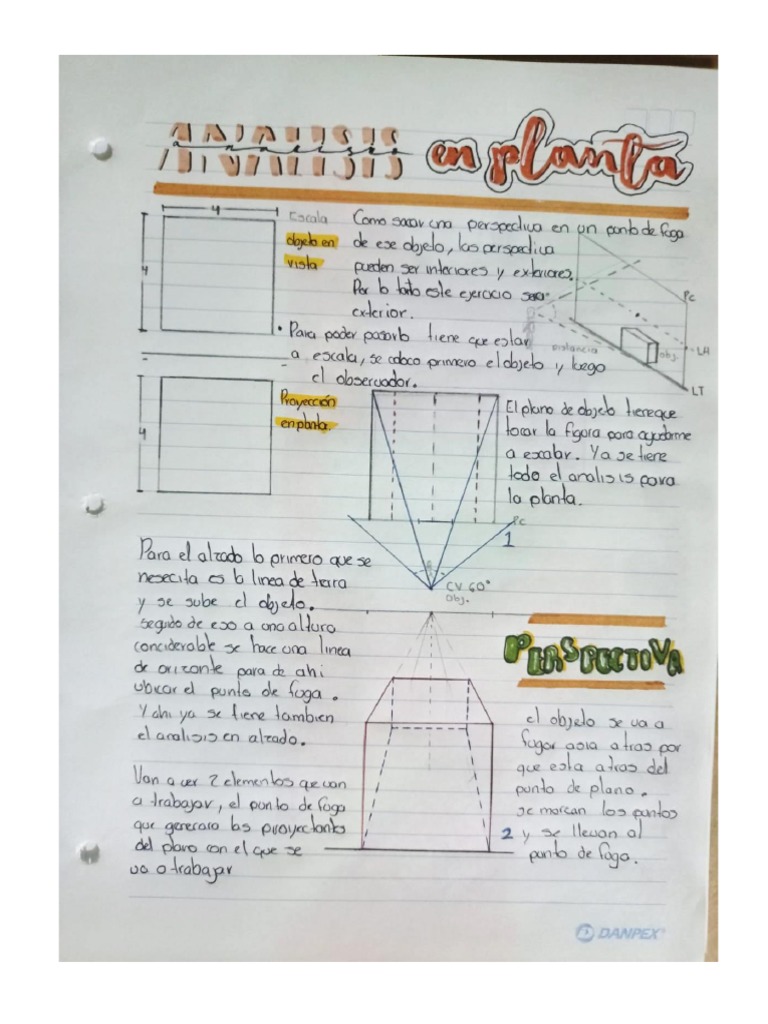 ANALISIS
analisis
en planta
4
Escala
4
objeto en
vista
Como sacar una perspectiva en un punto de fuga
de ese objeto, las perspectiva
pueden ser interiores y exteriores.
Por lo tanto este ejercicio sera
exterior.
• Para poder pasarlo tiene que estar
a escala, se coloco primero el objeto y luego
el observador.
PC
distancia
obj.
LH
LT
Proyección
en planta.
4
El plano de objeto tiene que
tocar la figura para ayudarme
a escalar. Ya se tiene
todo el analisis para
la planta.
PC
1
CV 60°
Obj.
Para el alzado lo primero que se
nesecita es la linea de tierra
y se sube el objeto.
seguido de eso a una altura
conciderable se hace una linea
de orizonte para de ahi
ubicar el punto de fuga.
Y ahi ya se tiene tambien
el analisis en alzado.
Van a ver 2 elementos que van
a trabajar, el punto de fuga
que generara las proyectantes
del plano con el que se
va a trabajar
PERSPECTIVA
el objeto se va a
fugar asia atras por
que esta atras del
punto de plano.
se marcan los puntos
2 y se llevan al
punto de fuga.
DANPEX